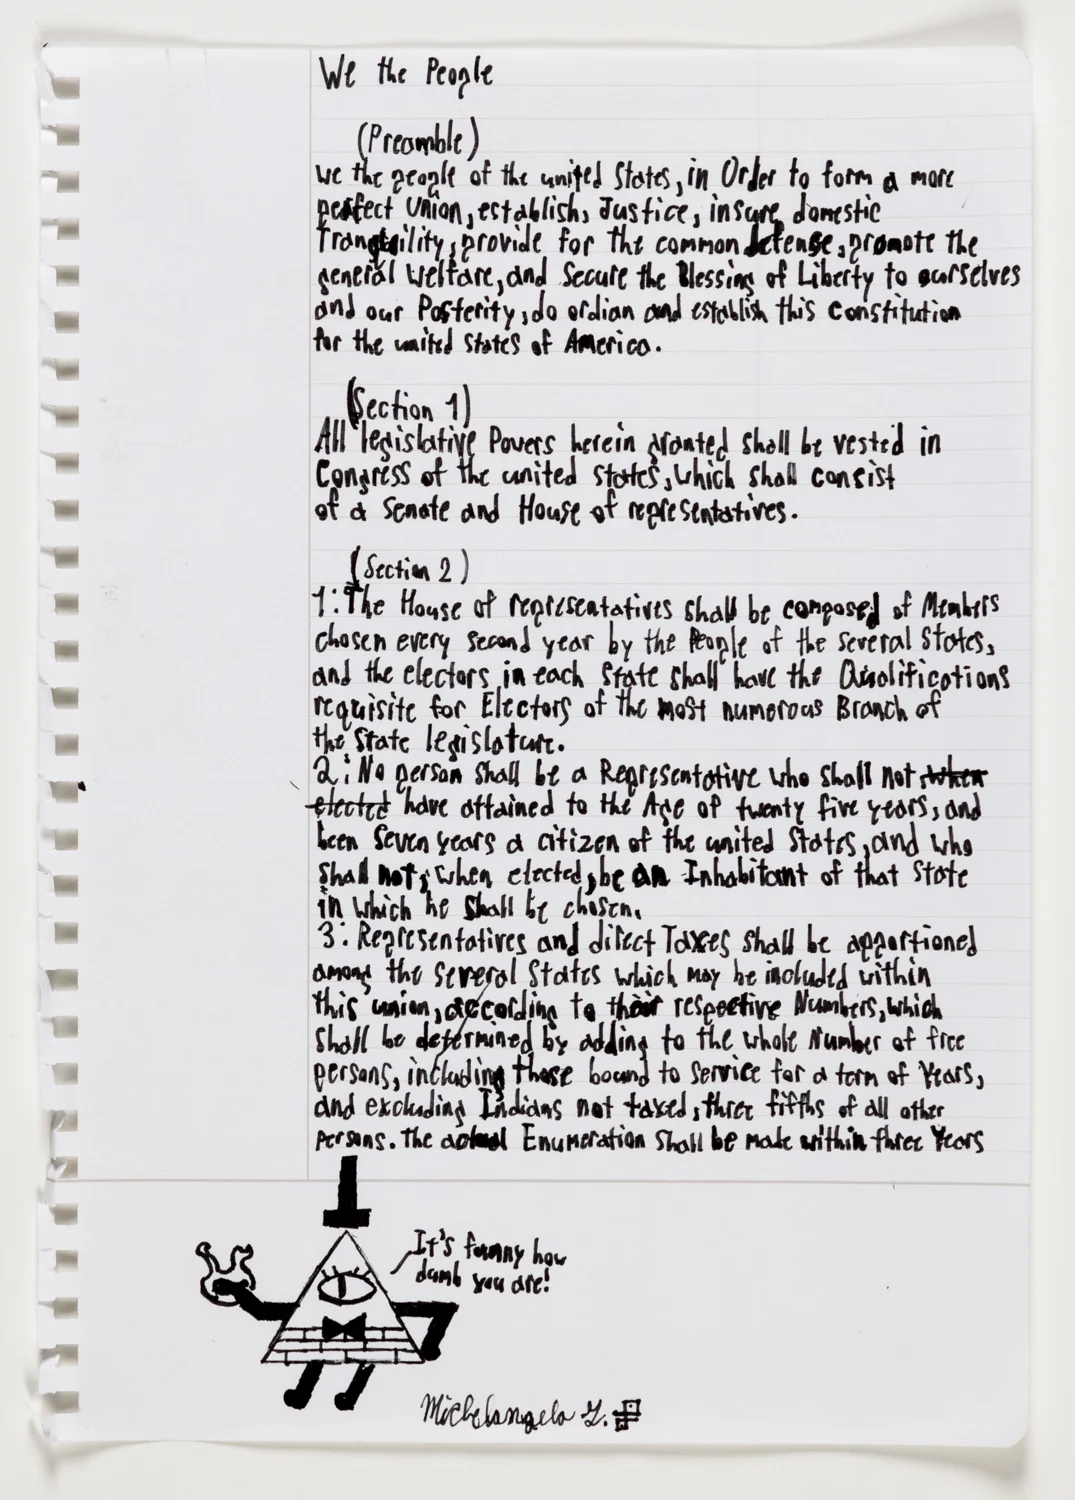 We the People
(Preamble)
we the people of the united States, in Order to form a more
perfect Union, establish, Justice, insure domestic
Tranquility, provide for the common defense, promote the
general Welfare, and Secure the Blessing of Liberty to ourselves
and our Posterity, do ordian and establish this Constitution
for the united States of America.
(Section 1)
All legislative Powers herein granted shall be vested in
Congress of the united States, which shall consist
of a Senate and House of representatives.
(Section 2)
1: The House of representatives shall be composed of Members
chosen every second year by the People of the several States,
and the electors in each State shall have the Qualifications
requisite for Electors of the most numerous Branch of
the State legislature.
2: No person shall be a Representative who shall not, when
elected have attained to the Age of twenty five years, and
been Seven years a citizen of the united States, and who
shall not, when elected, be an Inhabitant of that State
in which he shall be chosen.
3: Representatives and direct Taxes shall be apportioned
among the several States which may be included within
this union, according to their respective Numbers, which
shall be determined by adding to the whole Number of free
persons, including those bound to service for a term of Years,
and excluding Indians not taxed, three fifths of all other
persons. The actual Enumeration shall be made within three Years
It's funny how
dumb you are!
Michelangelo Y.